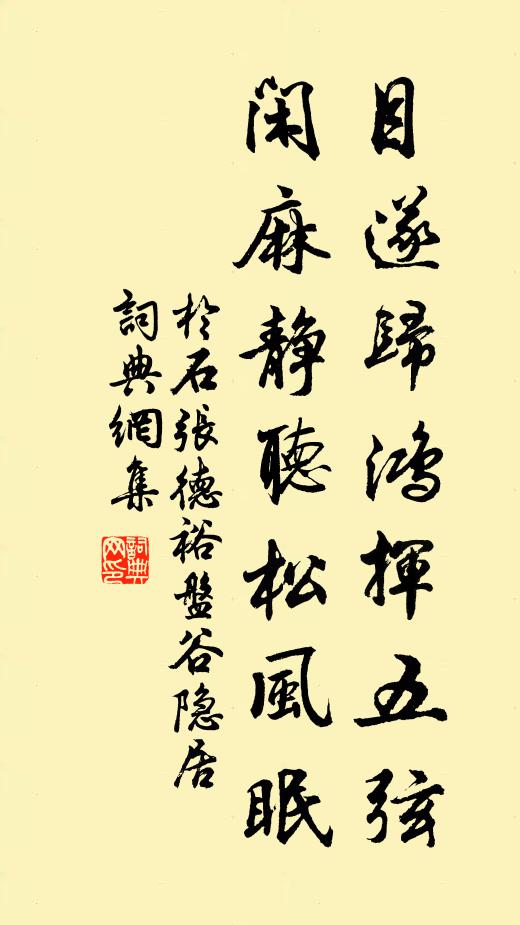 目遂歸鴻揮五弦
閑麻靜聽松風眠
於石張德裕盤谷隐居
詞典網集
詞典
网印